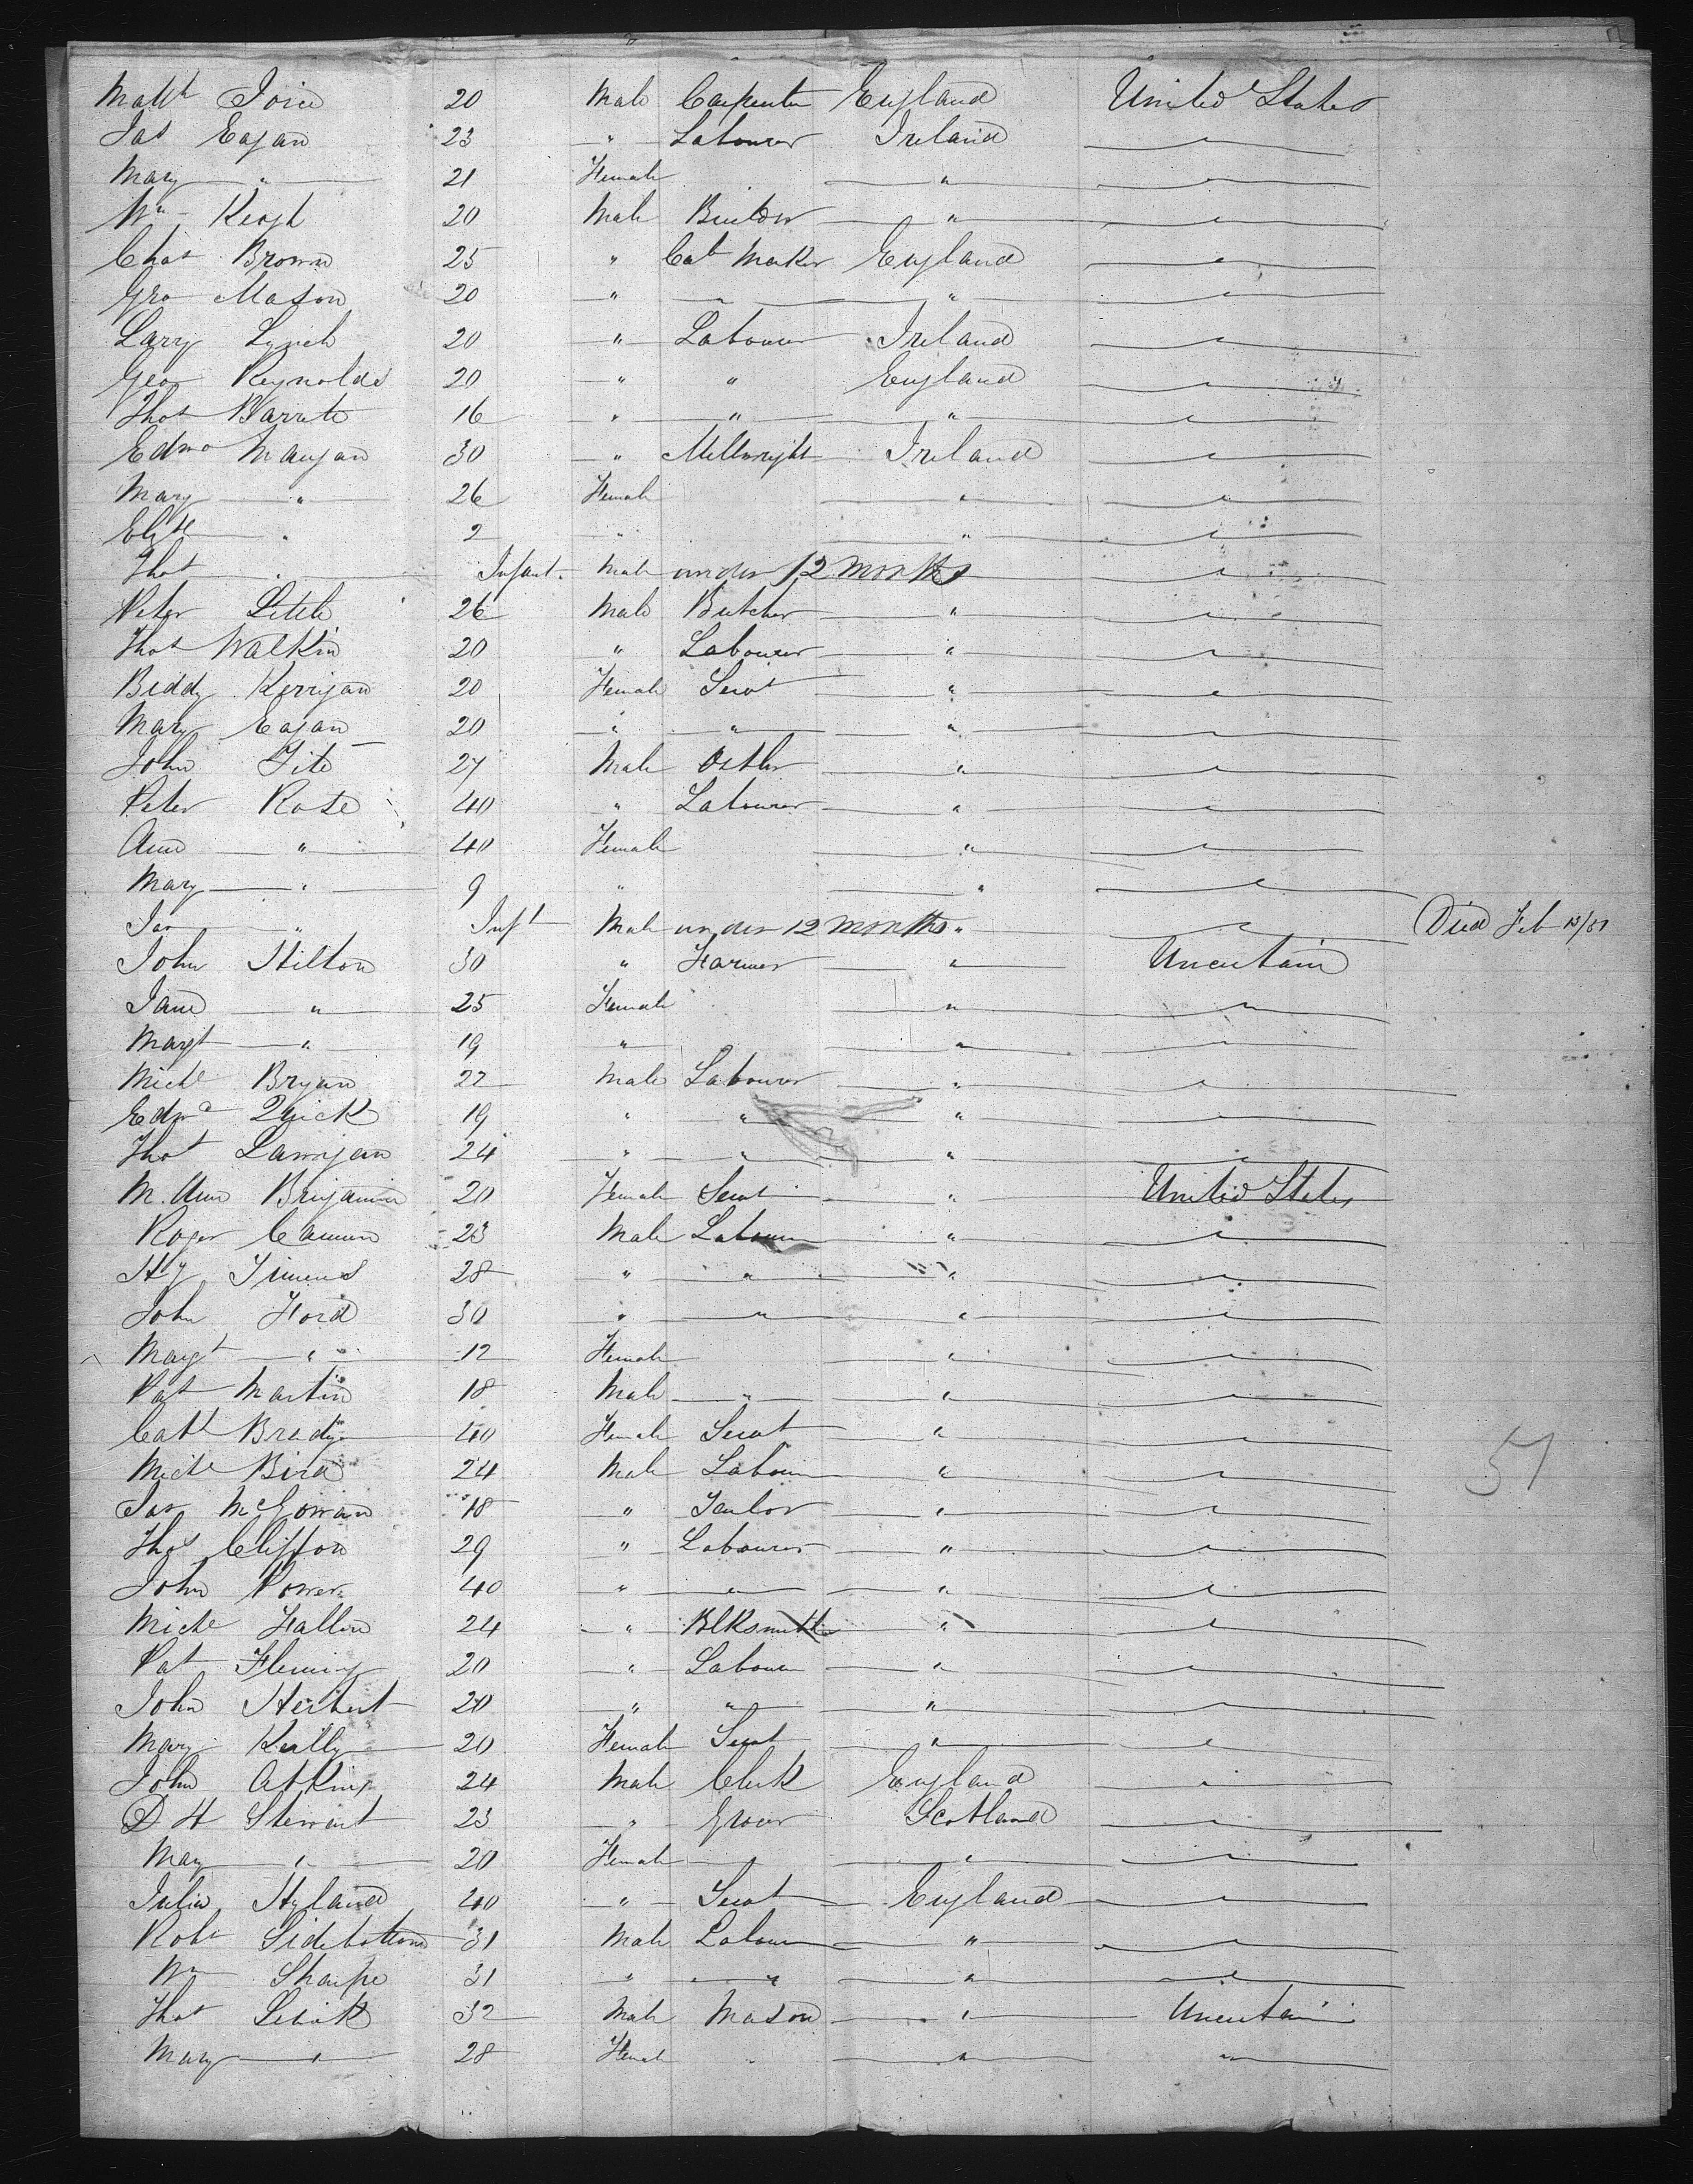 Matth Joice 20 Male Carpenter England United States
Jas Eagan 23 " Labourer Ireland "
Mary " 21 Female " "
Wm Keogh 20 Male " "
Chas Brown 25 " Cab Maker England "
Geo Mason 20 " " " "
Larry Lynch 20 " Labourer Ireland "
Geo Reynolds 20 " " England "
Thos Barrett 16 " " " "
Edmd Mangan 30 " Millwright Ireland "
Mary " 26 Female " "
Elizth " 2 " " "
Thos " Infant Male under 12 months "
Peter Little 26 Male Butcher " "
Thos Walkin 20 " Labourer " "
Biddy Kerrigan 20 Female Servt " "
Mary Eagan 20 " " " "
John Tite 27 Male Ostler " "
Peter Rose 40 " Labourer " "
Ann " 40 Female " "
Mary " 9 " " "
Jas " Inft Male under 12 months " " Died Feb 13/51
John Hilton 30 " Farmer " Uncertain
Jane " 25 Female " "
Margt " 19 " " "
Michl Bryan 22 Male Labourer " "
Edmd Quick 19 " " " "
Thos Lannigan 24 " " " "
M. Ann Benjamin 20 Female Servt " United States
Roger 23 Male Labourer " "
Hy Timens 28 " " " "
John Ford 30 " " " "
Margt " 12 Female " "
Pat Martin 18 Male " " "
Cath Brady 40 Female Servt " "
Michl Bird 24 Male Labourer " "
Jas McGowan 18 " Tailor " "
Thos Clifton 29 " Labourer " "
John Power 40 " " " "
Michl Fallon 24 " Blksmith " "
Pat Fleming 20 " Labourer " "
John Herbert 20 " " " "
Mary Kelly 20 Female Servt " "
John Atkins 24 Male Clerk England "
D H Stewart 23 " Grocer Scotland "
Mary " 20 Female " "
Julia Hyland 40 " Servt England "
Robt Sidebottom 31 Male Labourer " "
Wm Sharpe 31 " " " "
Thos 32 Male Mason " Uncertain
Mary " 28 Femal " "
51